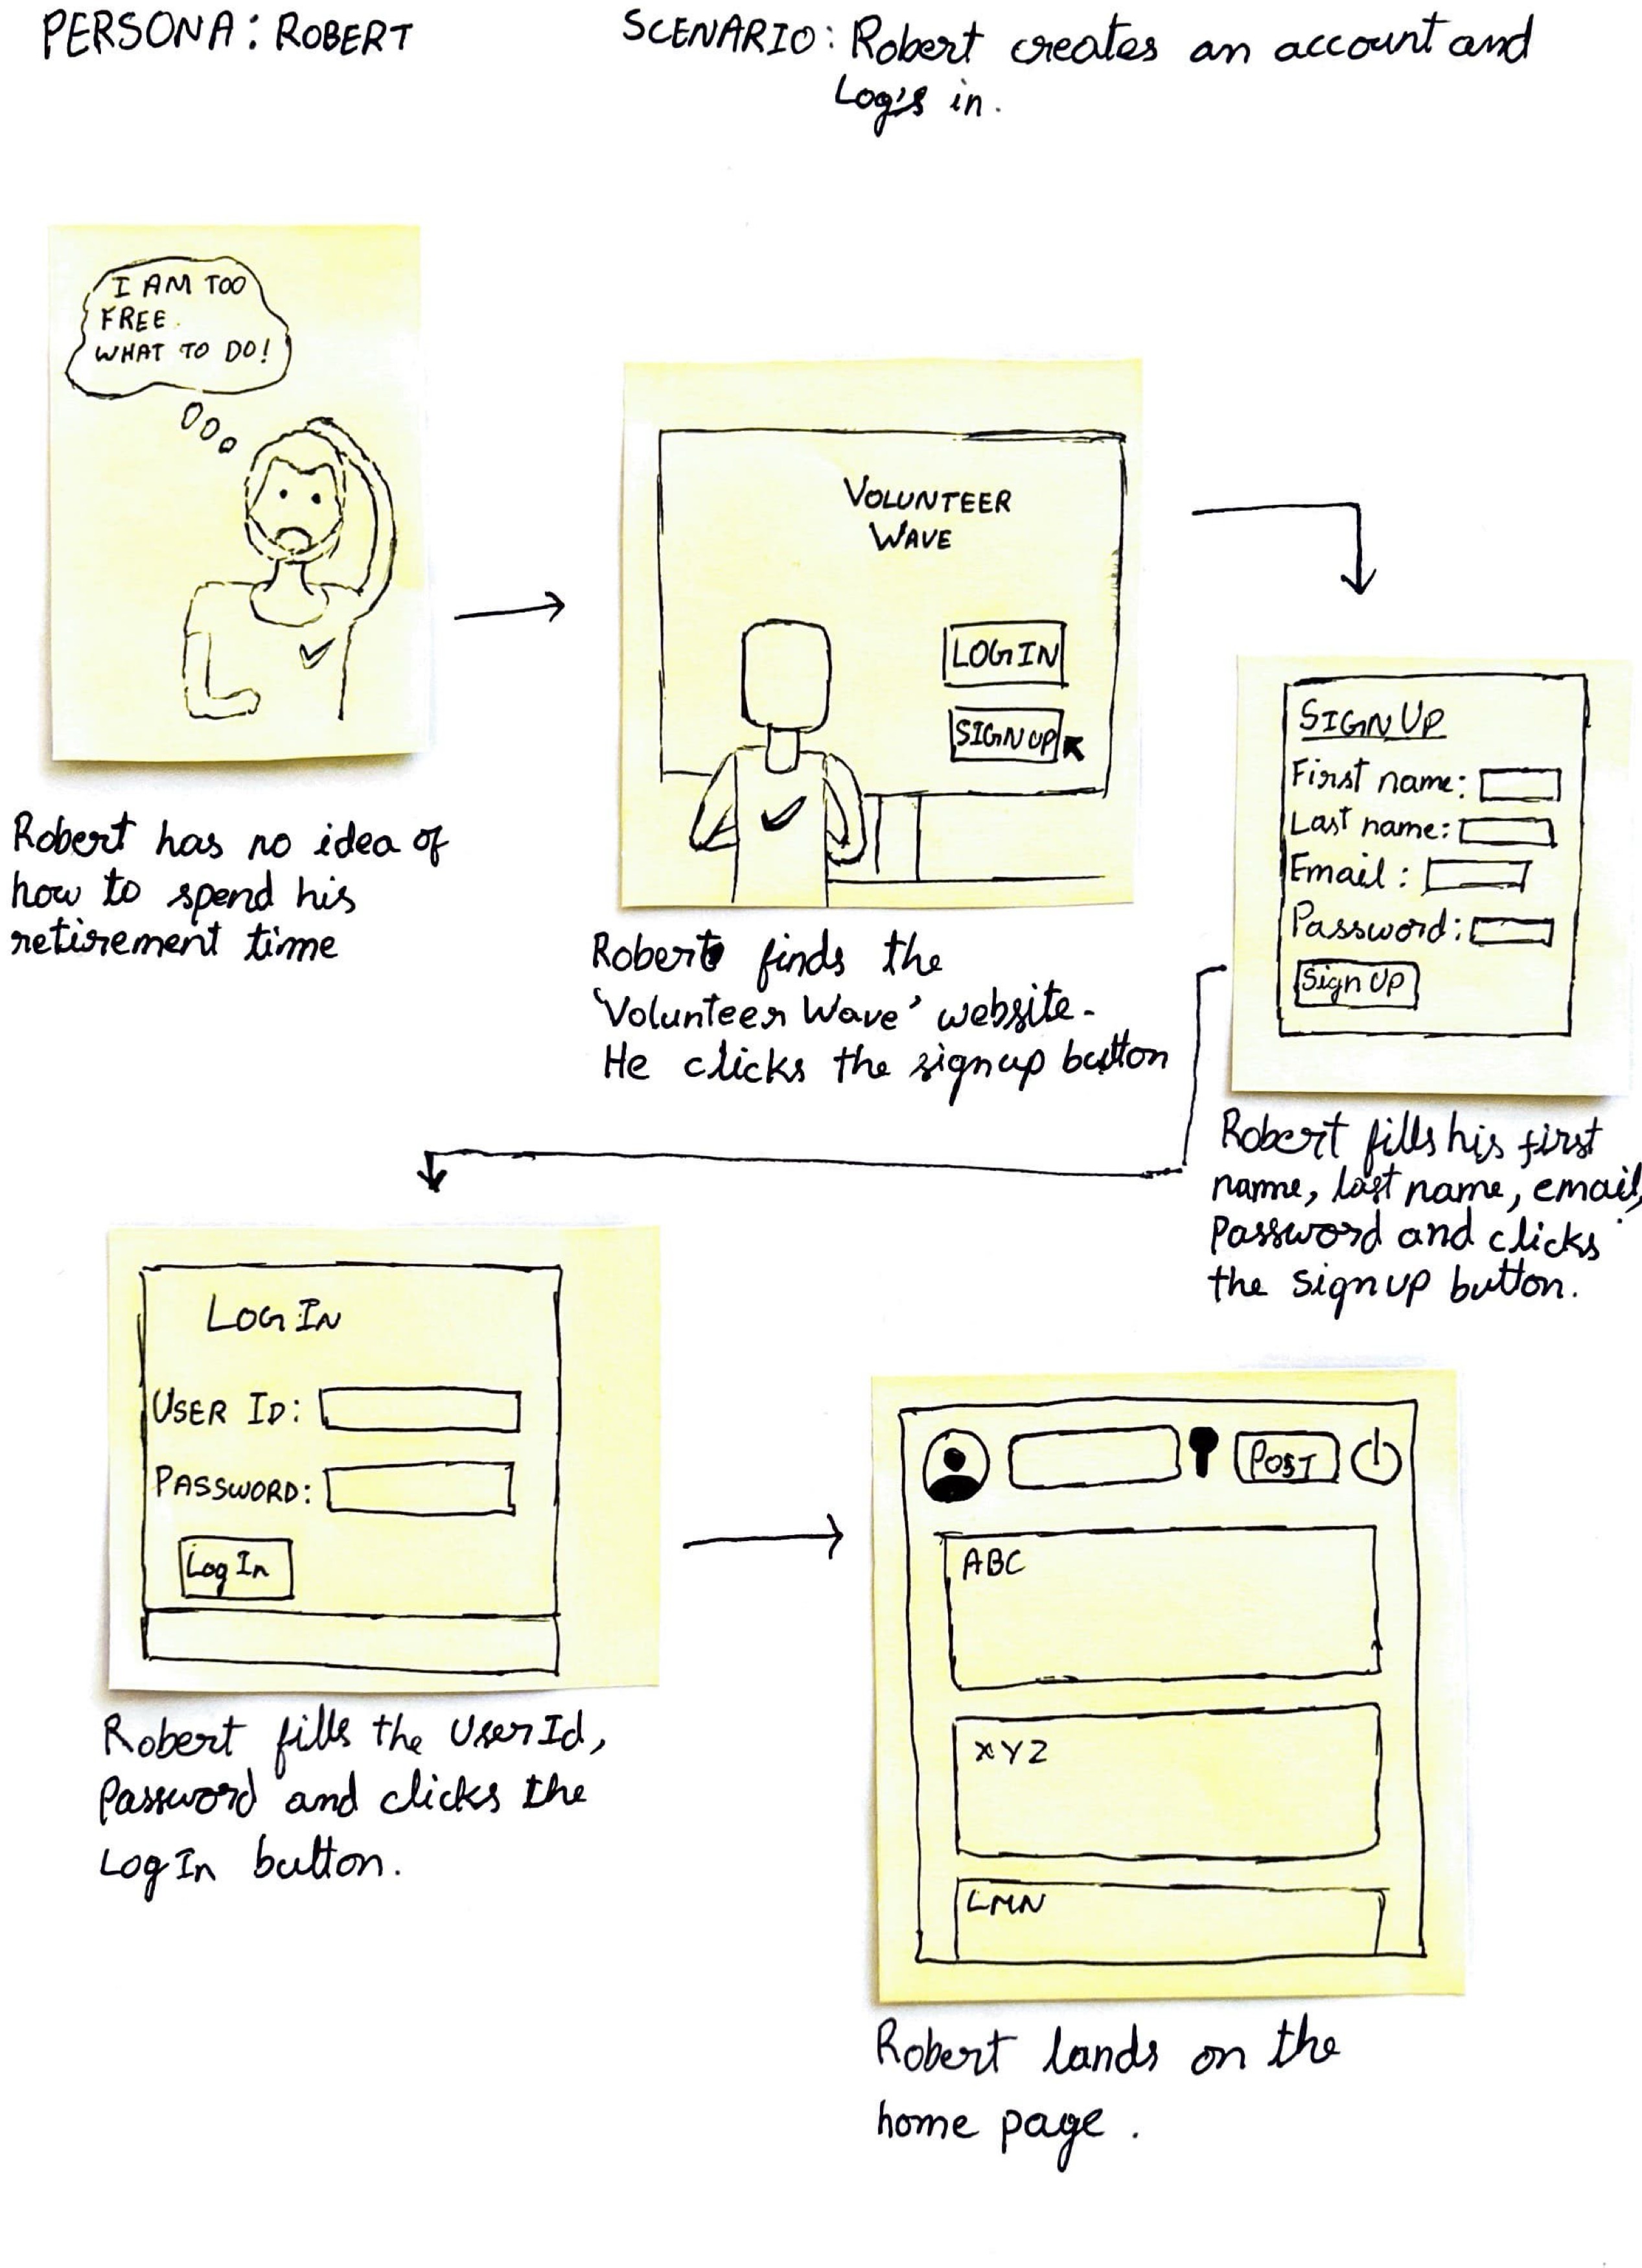 PERSONA: ROBERT
SCENARIO: Robert creates an account and
Log's in.
I AM TOO
FREE.
WHAT TO DO!
Robert has no idea of
how to spend his
retirement time
VOLUNTEER
WAVE
LOGIN
SIGN UP
Robert finds the
'Volunteer Wave' website.
He clicks the signup button
SIGN UP
First name:
Last name:
Email:
Password:
Sign Up
Robert fills his first
name, last name, email,
Password and clicks
the sign up button.
LOG IN
USER ID:
PASSWORD:
Log In
Robert fills the User Id,
Password and clicks the
Log In button.
POST
ABC
XYZ
LMN
Robert lands on the
home page.